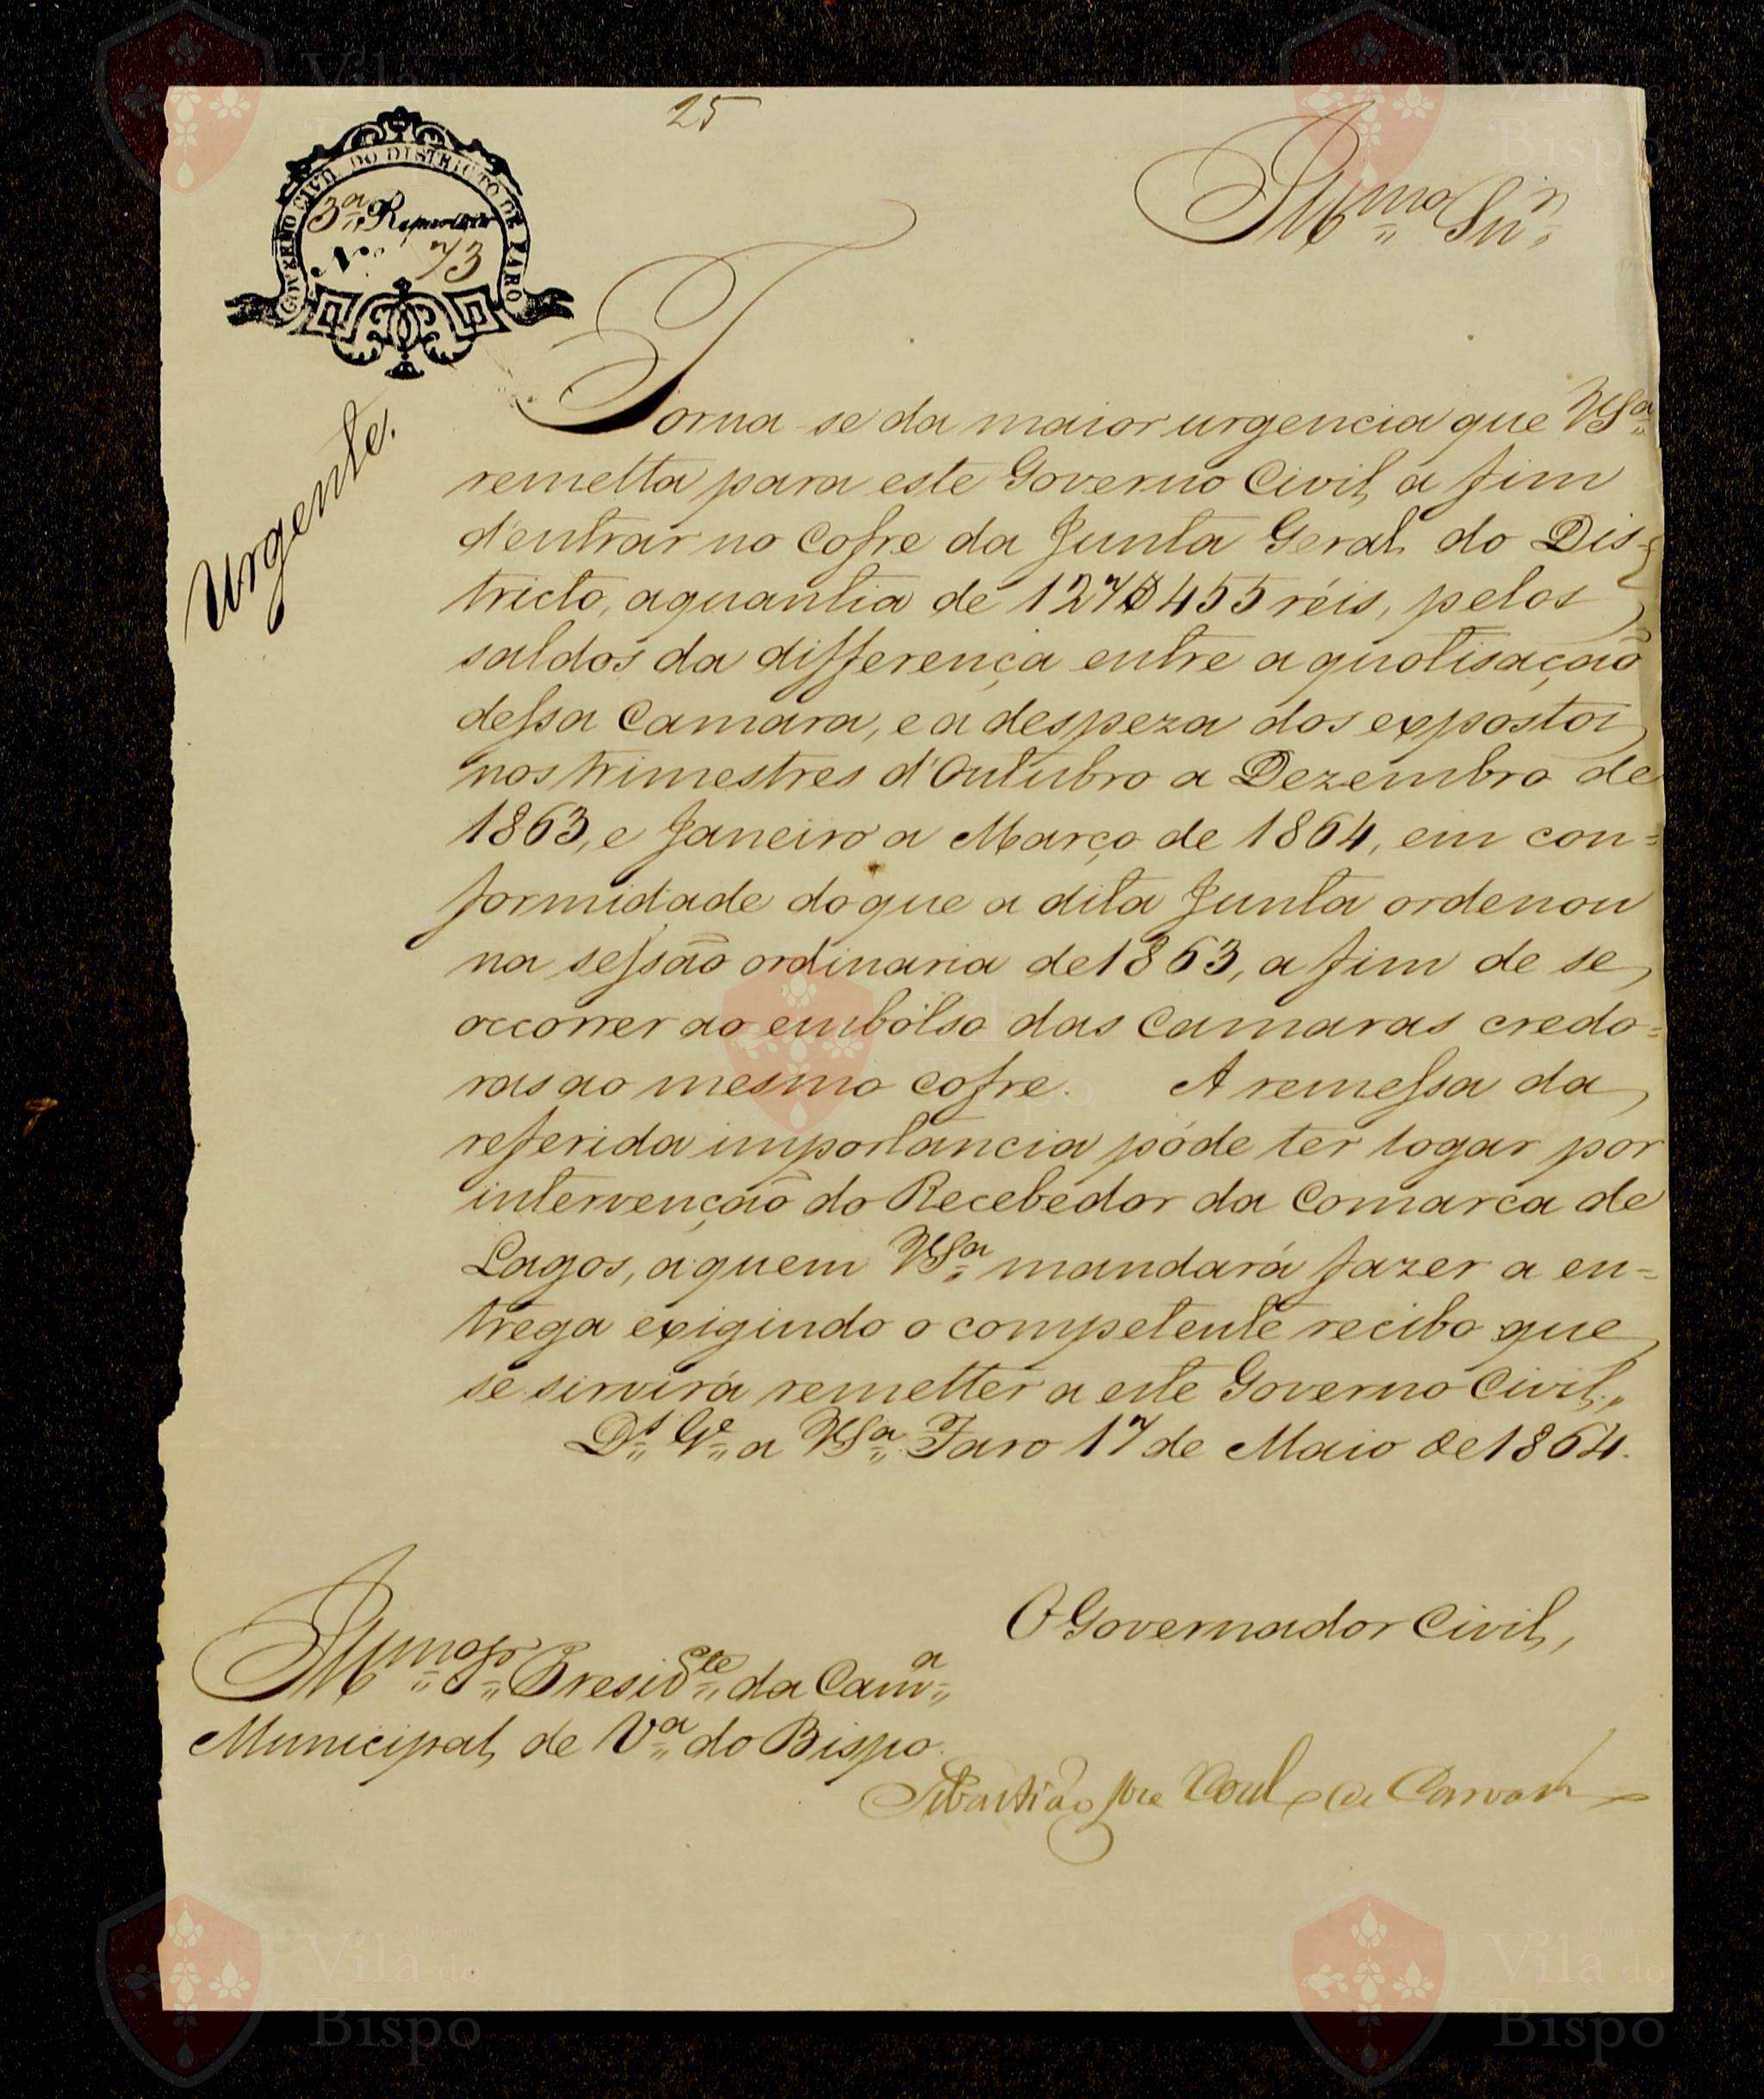 25
GOVERNO CIVIL DO DISTRICTO DE FARO
3.ª Repartição
N.º 73
Ill.mo Snr.
Urgente.
Torna-se da maior urgencia que V.S.ª
remetta para este Governo Civil, a fim
d'entrar no Cofre da Junta Geral do Dis-
tricto, a quantia de 127$455 réis, pelos
saldos da differença entre a quotisação
dessa Camara, e a despeza dos expostos
nos trimestres d'Outubro a Dezembro de
1863, e Janeiro a Março de 1864, em con=
formidade do que a dita Junta ordenou
na sessão ordinaria de 1863, a fim de se
occorrer ao embolso das Camaras credo=
ras ao mesmo cofre. A remessa da
referida importancia póde ter logar por
intervenção do Recebedor da Comarca de
Lagos, a quem V.S.ª mandará fazer a en=
trega exigindo o competente recibo que
se sirvirá remetter a este Governo Civil.
D.s G.e a V.S.ª Faro 17 de Maio de 1864.
O Governador Civil,
Ill.mo Sr. Presid.te da Cam.ª
Municipal de V.ª do Bispo.
Sebastião José de Carvalho
Vila do
Bispo